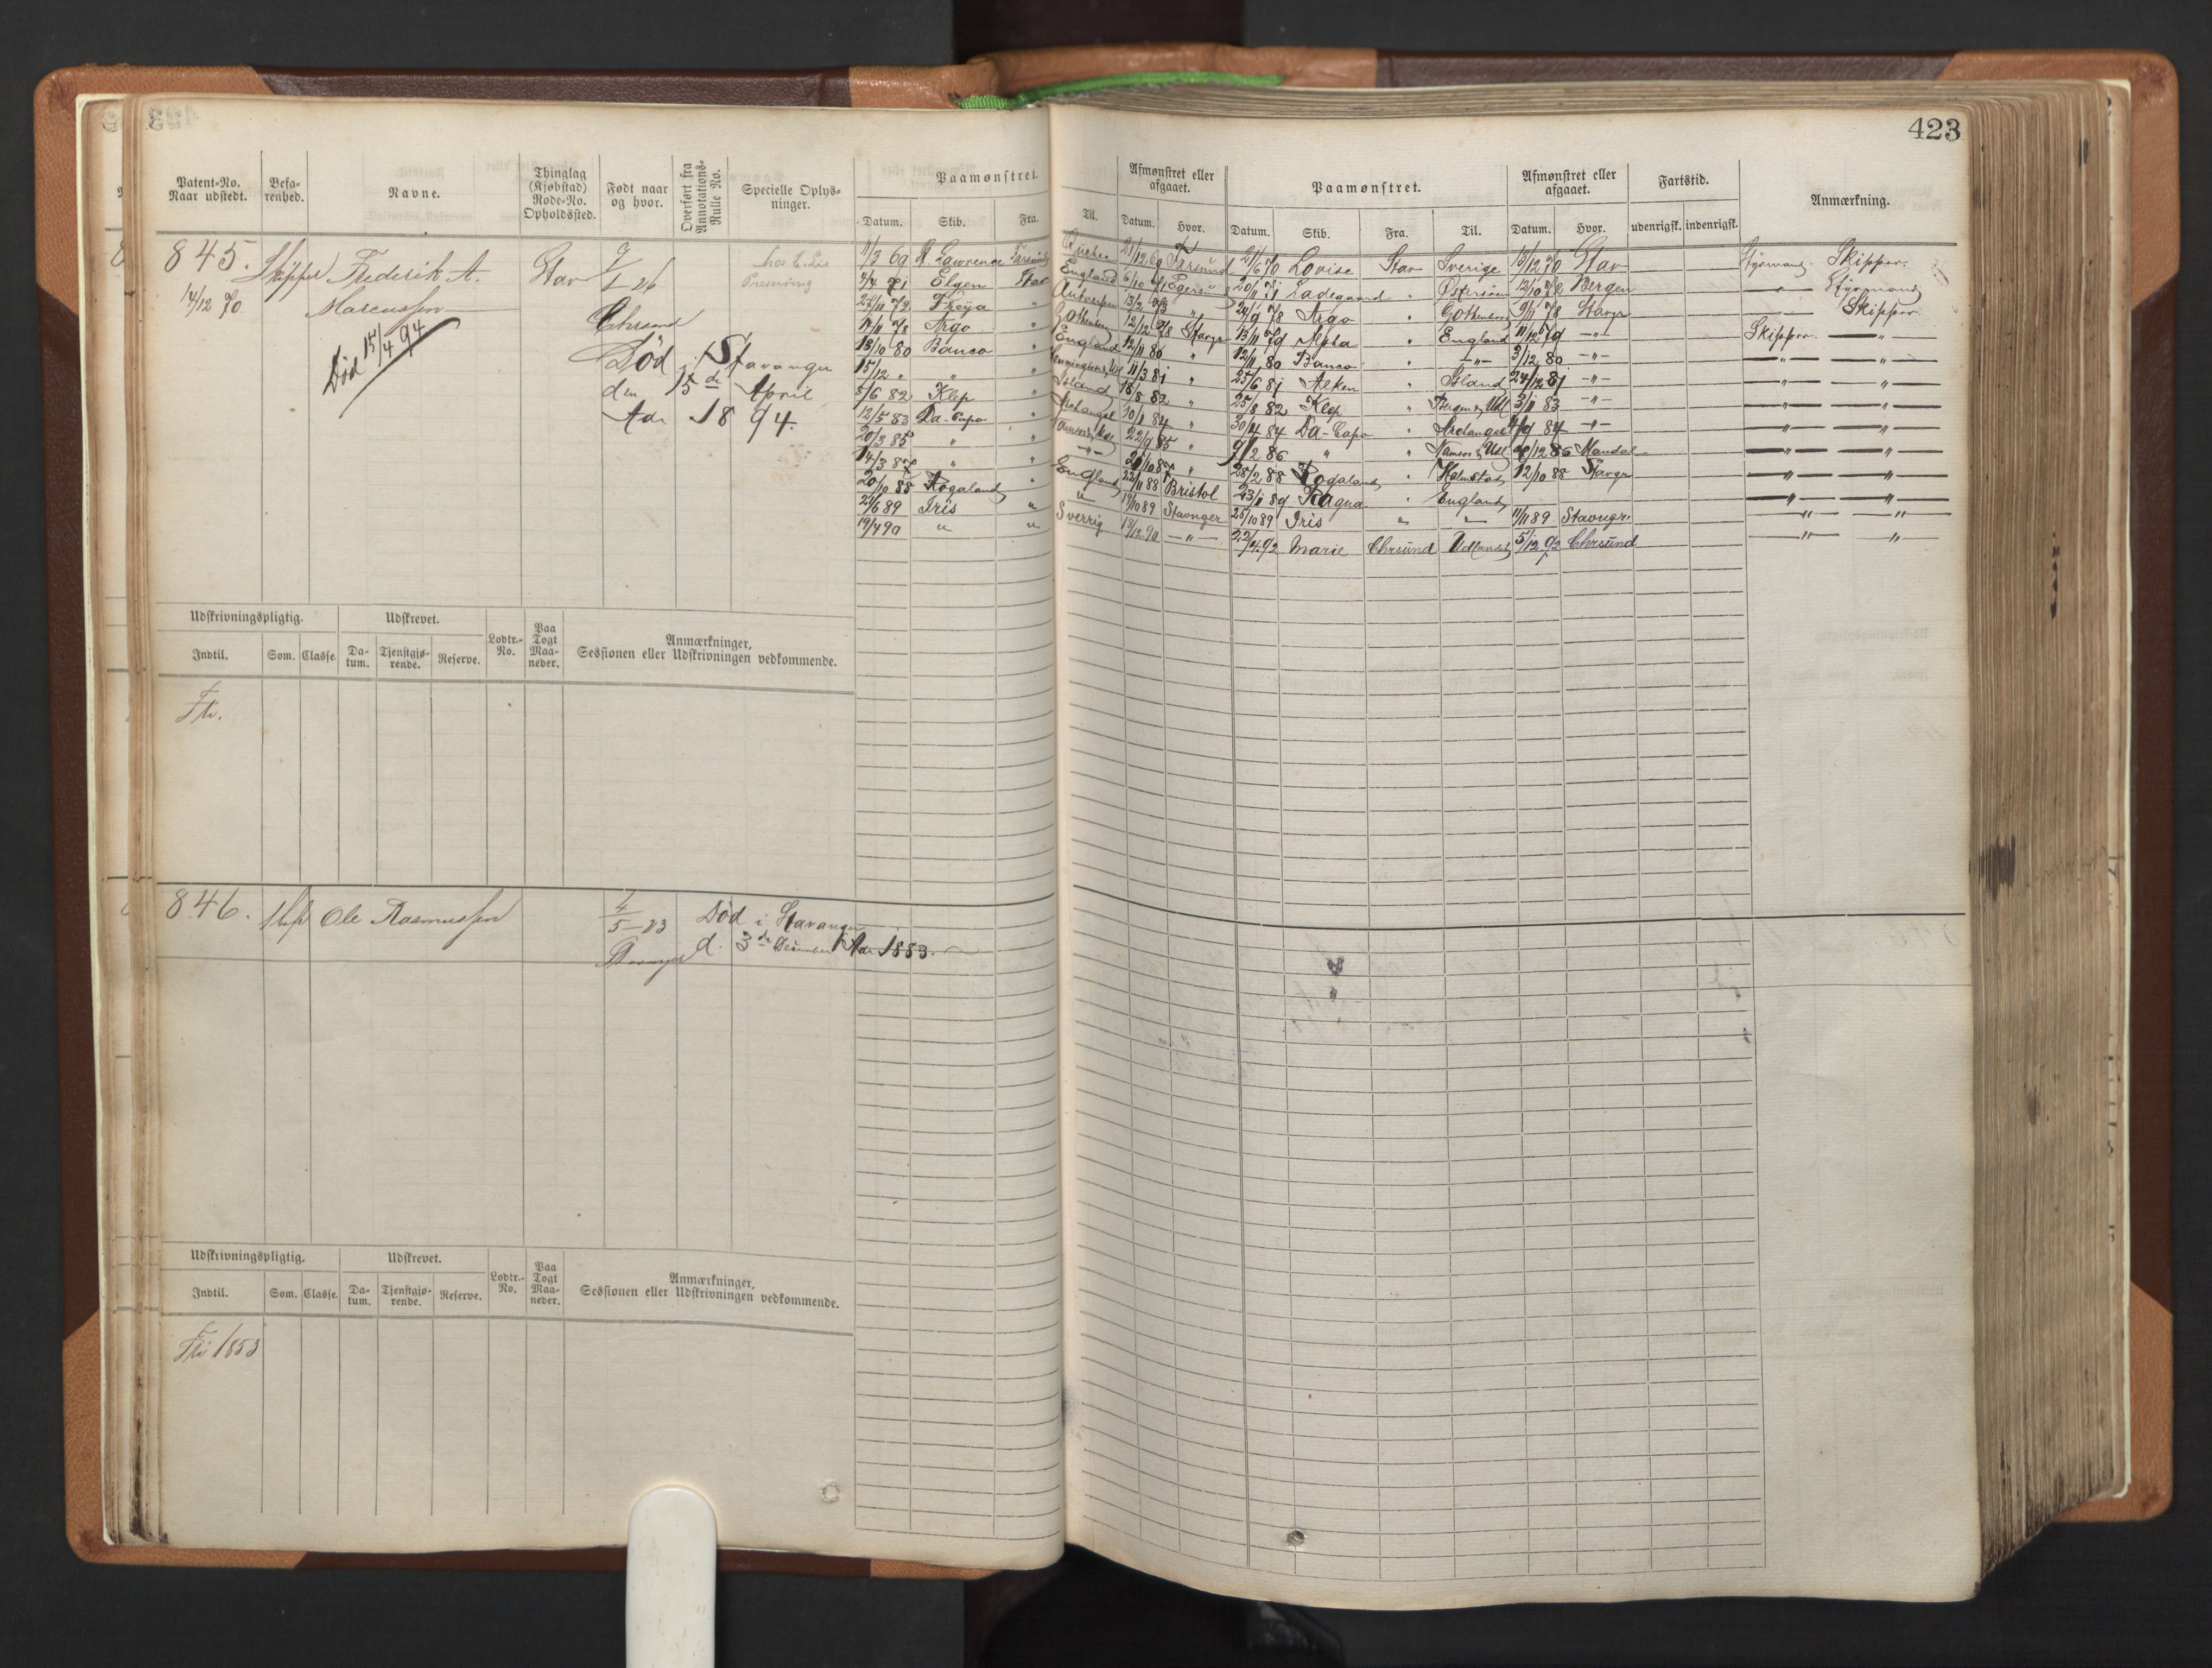 423
Patent-No. Naar udstedt.
Befarenhed.
Navne.
Thinglag (Kjøbstad) Rode-No. Opholdssted.
Født naar og hvor.
Overført fra Annotations-Rulle No.
Specielle Oplysninger.
Paamønstret.
Datum. Skib. Fra. Til.
Afmønstret eller afgaaet.
Datum. Hvor.
Paamønstret.
Datum. Skib. Fra. Til.
Afmønstret eller afgaaet.
Datum. Hvor.
Fartstid.
udenrigsk. indenrigsk.
Anmærkning.
845. Skipper Frederik A. Stav
14/12 70. Marcussen
Død 15/4 94
Chrsand
Død i Stavanger
den 15de April
Aar 1894.
11/3 69 St Lawrence Farsund Quebec 21/12 69 Farsund Lovise Stav Sverige 13/12 70 Stav Styrmand Skipper
Elgen Stav England 6/10 71 Egersund 20/11 71 Ladegaard " Østersøen 12/10 72 Bergen Styrmand
Freya " Antwerpen 24/9 78 Argo " Gothenborg 9/11 78 Stavgr Skipper
14/11 78 Argo " Gothenborg 12/12 78 Stavgr 13/11 79 Alpha " England 11/12 79 —"— Skipper —"—
13/10 80 Banco " England 12/11 80 " 12/11 80 Banco " —"— 3/12 80 —"— —"— —"—
15/12 " " " 11/3 81 " 25/6 81 Alken " Island 24/12 81 —"— —"— —"—
5/6 82 Klep " Island 18/8 82 " 25/8 82 Klep " Bergen & Udl 3/11 83 —"— —"— —"—
12/5 83 Da-Capo " Archangel 30/11 84 " 30/4 84 Da-Capo " Archangel 4/9 84 —"— —"— —"—
20/3 85 " " 22/9 85 " 9/2 86 " " Namsos & Udl 20/12 86 Mandal —"— —"—
14/3 87 " " —"— 21/10 87 " 28/2 88 Rogaland " Halmstad 12/10 88 Stavgr —"— —"—
20/10 88 Rogaland " England 22/11 88 Bristol 23/11 89 Ragna " England —"— —"—
21/6 89 Iris " " 19/10 89 Stavnger 25/10 89 Iris " " 11/11 89 Stavngr. —"— —"—
19/4 90 " " Sverrig 18/12 90 —"— Marie Chrsund Udlandet 5/12 92 Chrsund —"— —"—
Udskrivningspligtig. Udskrevet. Lodtr.-No. Paa Togt Maaneder. Anmærkninger, Sessionen eller Udskrivningen vedkommende.
Indtil. Som. Classe. Datum. Tjenstgjørende. Reserve.
Fri.
846. Ole Rasmussen 4/5-23 Død i Stavanger
Stavanger d. 3de December Aar 1883.
Udskrivningspligtig. Udskrevet. Lodtr.-No. Paa Togt Maaneder. Anmærkninger, Sessionen eller Udskrivningen vedkommende.
Indtil. Som. Classe. Datum. Tjenstgjørende. Reserve.
Fri 1853